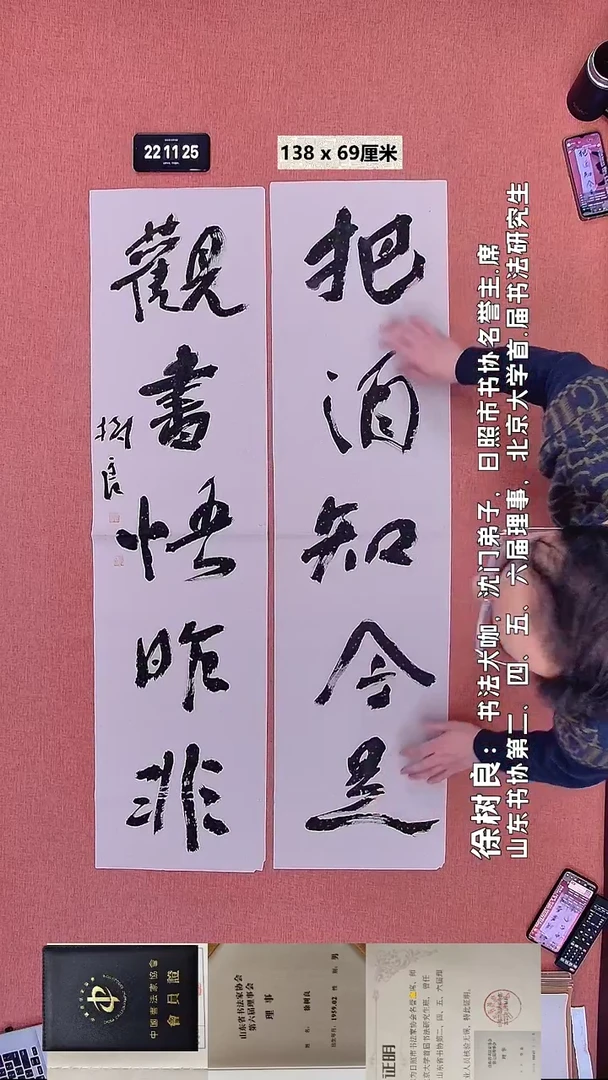 22 11 25
138 x 69厘米
把酒知今是
觀書悟昨非
樹良
徐树良：书法大咖，沈门弟子，日照市书协名誉主.席
山东书协第二、四、五、六届理事，北京大学首.届书法研究生
中国書法家協會
會員證
山东省书法家协会
第六届理事会
理事
姓 名：徐树良
性 别：男
出生年月：1959.02
证明